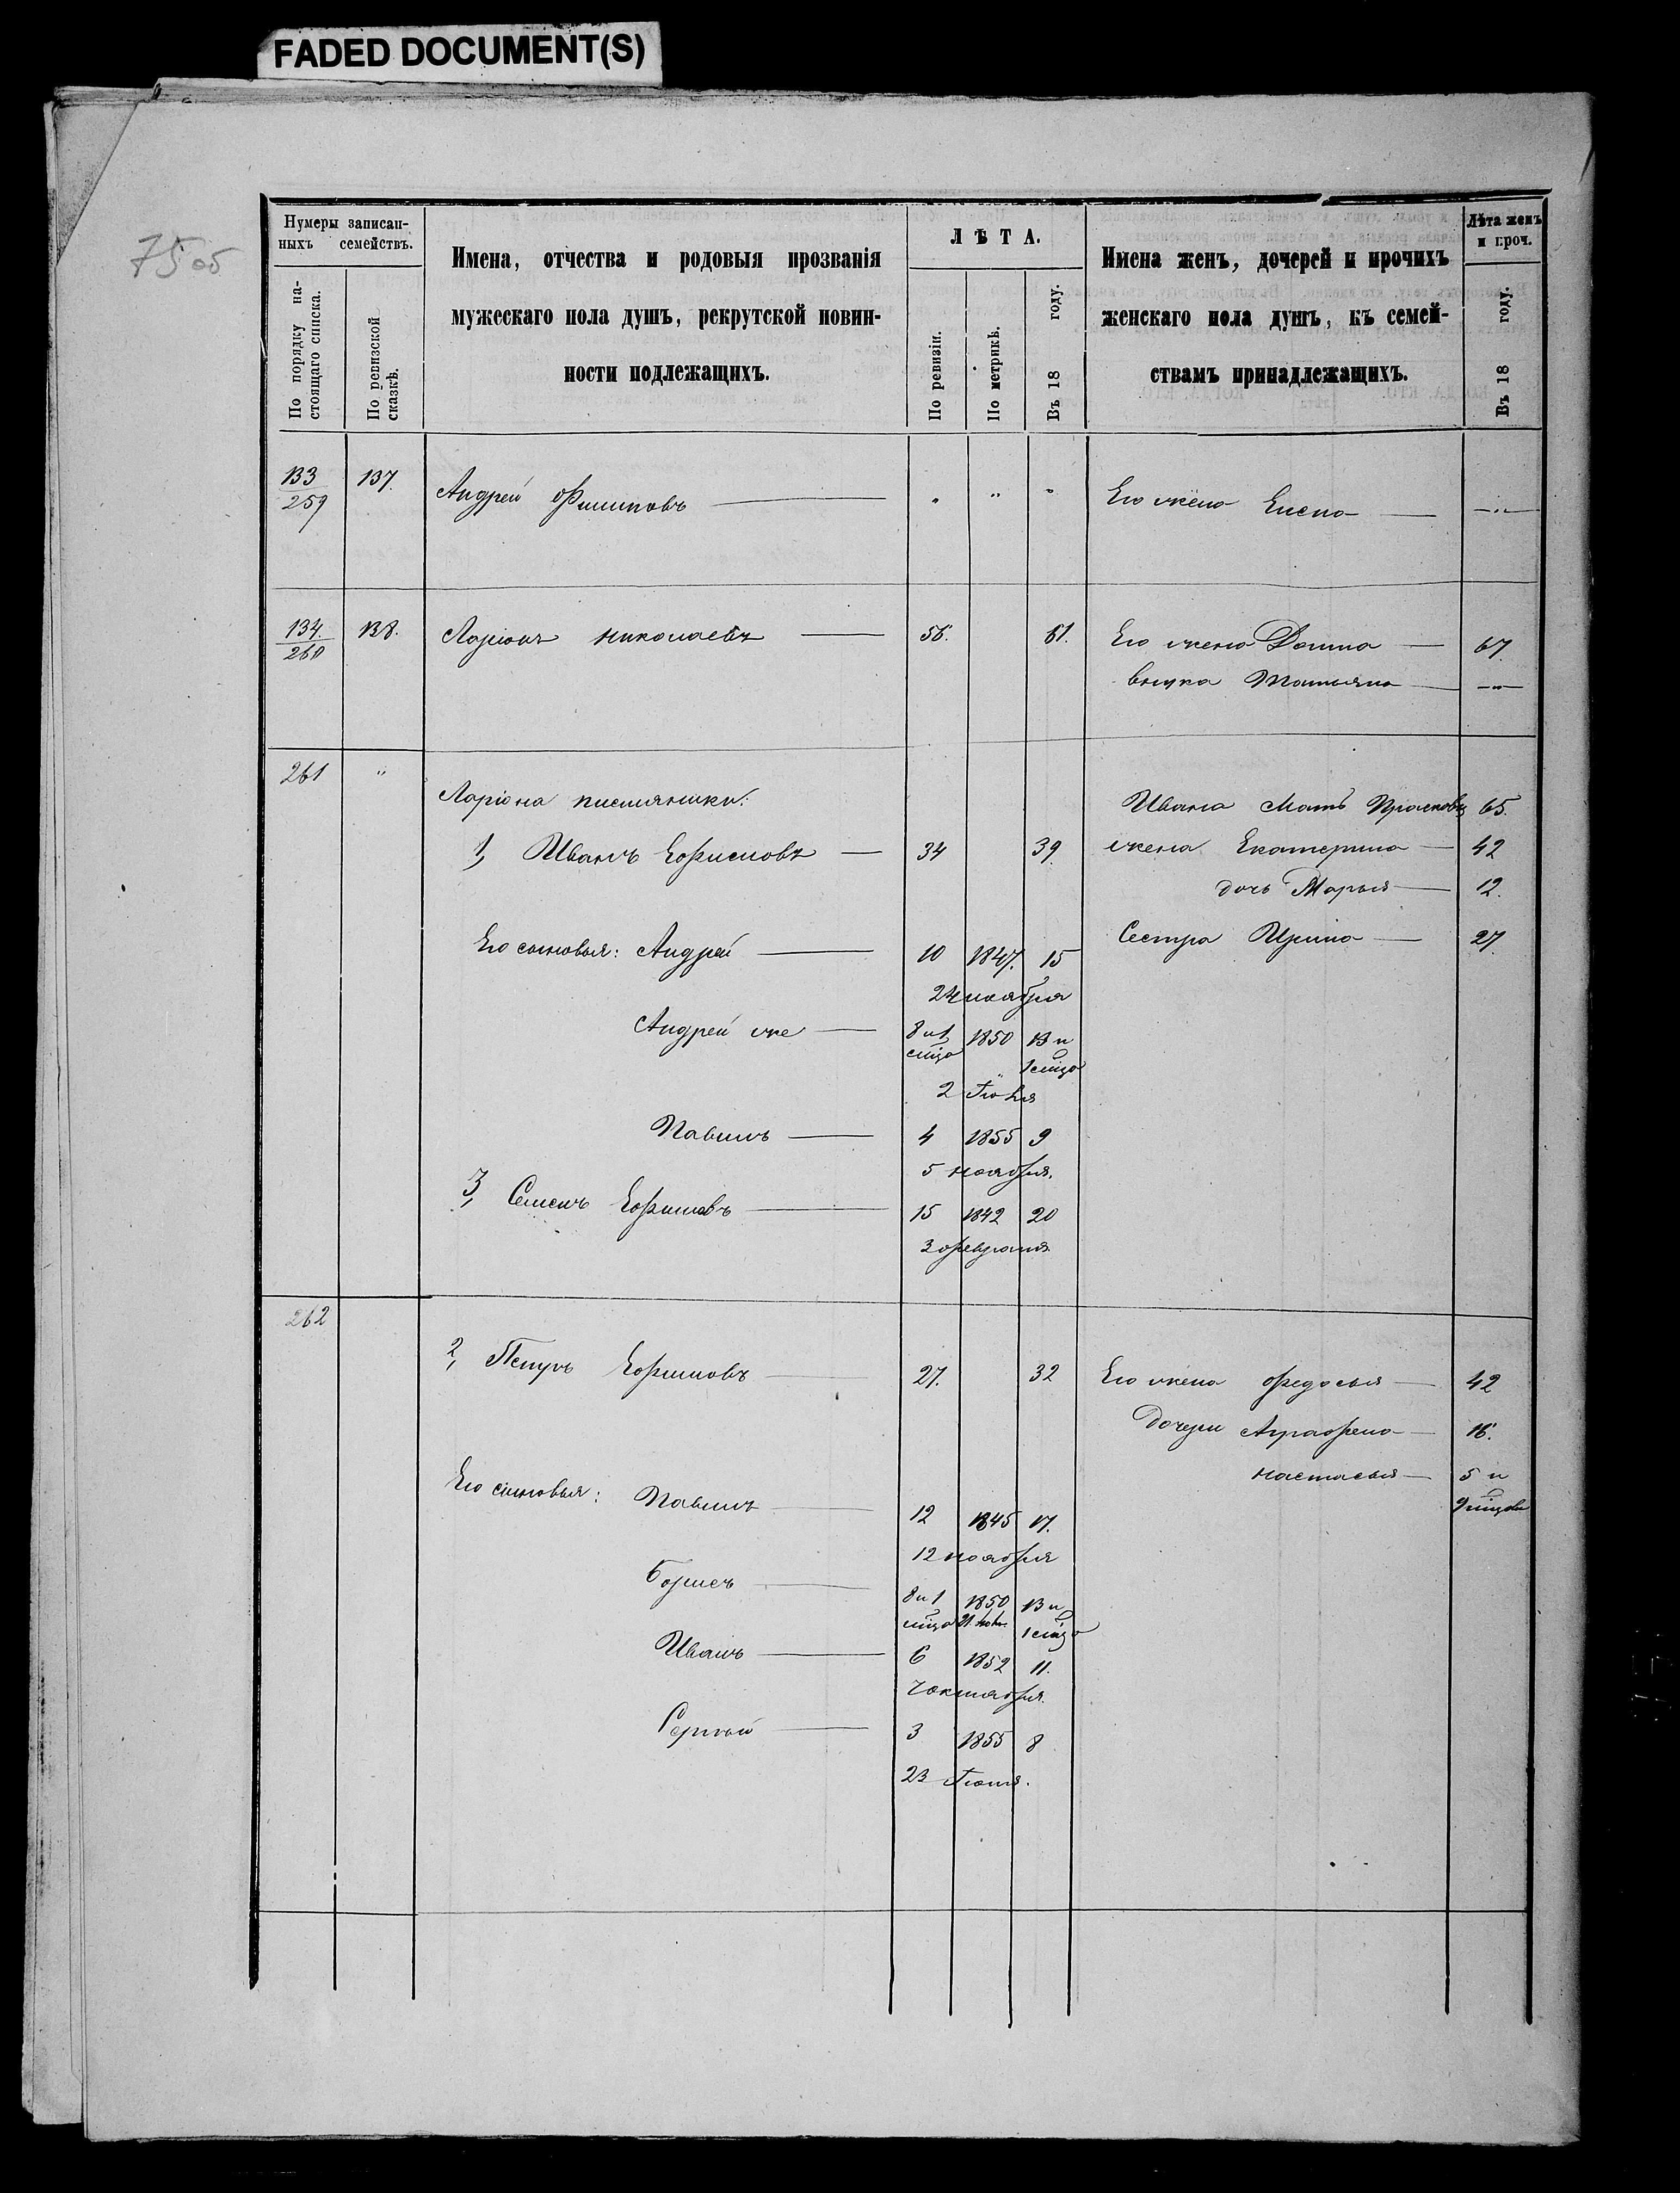 FADED DOCUMENT(S)
75 об
Нумеры записан-
ныхъ семействъ.
По порядку на-
стоящаго списка.
По ревизской
сказкѣ.
Имена, отчества и родовыя прозванія
мужескаго пола душъ, рекрутской повин-
ности подлежащихъ.
ЛѢТА.
По ревизіи.
По метрикѣ.
Въ 18 году.
Имена женъ, дочерей и прочихъ
женскаго пола душъ, къ семей-
ствамъ принадлежащихъ.
Лѣта женъ
и проч.
Въ 18 году.
133 137. Андрей Филиповъ — " " " Его жена Елена — — " —
259
134. 138. Ларіонъ Николаевъ — 56. 61. Его жена Домна — 67.
260
внука Татьяна — — " —
261 "
Ларіона племяники: Ивана мать Прасковья 65.
1, Иванъ Ефимовъ — 34 39. жена Екатерина — 42
дочь Марья — 12.
Его сыновья: Андрей — 10 1847. 15 Сестра Ирина — 27.
24 ноября
Андрей же — 8 и 1 1850 13 и
мѣца 1 мѣца
2 Іюня
Павелъ — 4 1855 9
5 ноября.
3, Семенъ Ефимовъ — 15 1842 20
3 февраля
262
2, Петръ Ефимовъ — 27. 32 Его жена Федосья — 42
дочери Аграфена — 16.
Настасья — 5 и
9 мѣцовъ
Его сыновья: Павелъ — 12 1845 17.
12 ноября
Борисъ — 8 и 1 1850 13 и
мѣца 21 1 мѣца
Иванъ — 6 1852 11.
7 октября.
Сергѣй — 3 1855 8
23 Іюня.